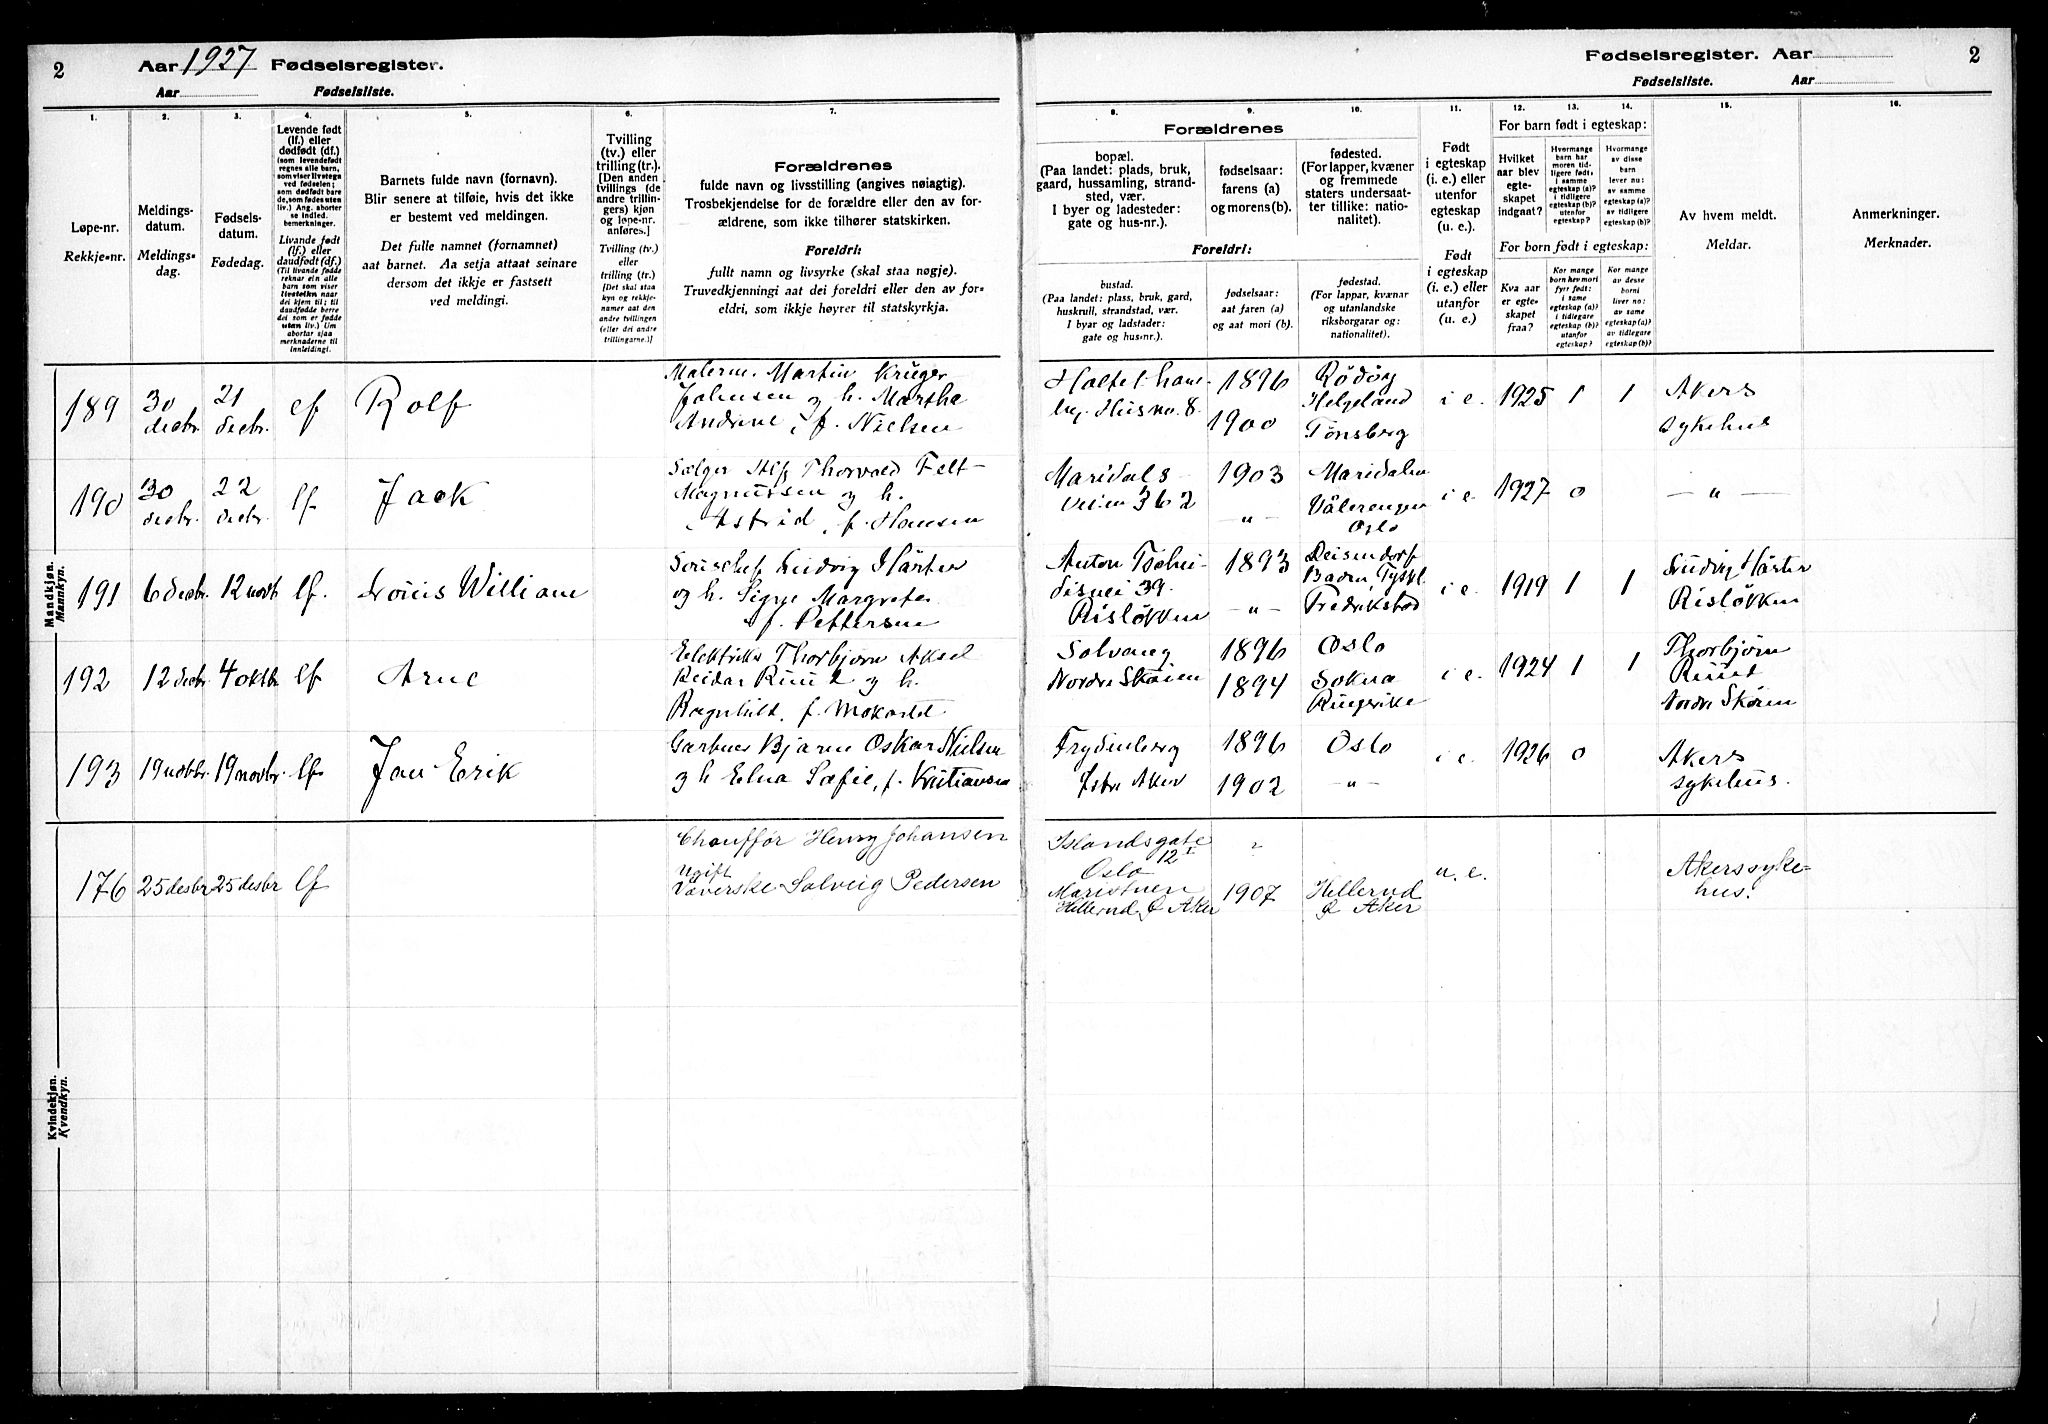 2
Aar 1927 Fødselsregister.
Aar Fødselsliste.
Fødselsregister. Aar
2
Fødselsliste. Aar
1.
Løpe-nr.
Rekkje-nr.
2.
Meldings-
datum.
Meldings-
dag.
3.
Fødsels-
datum.
Fødedag.
4.
Levende født
(lf.) eller
dødfødt (df.)
(som levendefødt
regnes alle barn,
som viser livstegn
ved fødselen;
som dødfødt bare
de, som fødes uten
liv.) Ang. aborter
se indled.
bemerkninger.
Livande født
(lf.) eller
daudfødt (df.)
(Til livande fødde
reknar ein alle
barn som viser
livsteikn naar
dei kjem til; til
daudfødde berre
dei som er fødde
utan liv.) Um
abortar sjaa
merknaderne til
innleidingi.
5.
Barnets fulde navn (fornavn).
Blir senere at tilføie, hvis det ikke
er bestemt ved meldingen.
Det fulle namnet (fornamnet)
aat barnet. Aa setja attaat seinare
dersom det ikkje er fastsett
ved meldingi.
6.
Tvilling
(tv.) eller
trilling (tr.).
[Den anden
tvillings (de
andre trillin-
gers) kjøn
og løpe-nr.
anføres.]
Tvilling (tv.)
eller
trilling (tr.)
[Det skal staa
kyn og rekkje-
nummer aat den
andre tvillingen
(eller dei andre
trillingarne.)]
7.
Forældrenes
fulde navn og livsstilling (angives nøiagtig).
Trosbekjendelse for de forældre eller den av for-
ældrene, som ikke tilhører statskirken.
Foreldri:
fullt namn og livsyrke (skal staa nøgje).
Truvedkjenningi aat dei foreldri eller den av for-
eldri, som ikkje høyrer til statskyrkja.
8.
9.
10.
Forældrenes
bopæl.
(Paa landet: plads, bruk,
gaard, hussamling, strand-
sted, vær.
I byer og ladesteder:
gate og hus-nr.).
fødselsaar:
farens (a)
og morens (b).
fødested.
(For lapper, kvæner
og fremmede
staters undersaat-
ter tillike: natio-
nalitet).
Foreldri:
bustad.
(Paa landet: plass, bruk, gard,
huskrull, strandstad, vær.
I byar og ladstader:
gate og hus-nr.).
fødselsaar:
aat faren (a)
og aat mori (b).
fødestad.
(For lappar, kvænar
og utanlandske
riksborgarar og:
nationalitet).
11.
Født
i egteskap
(i. e.) eller
utenfor
egteskap
(u. e.).
Født
i egteskap
(i. e.) eller
utanfor
egteskap
(u. e.).
12.
13.
14.
For barn født i egteskap:
Hvilket
aar blev
egte-
skapet
indgaat?
Hvormange
barn har
moren tid-
ligere født,
i samme
egteskap (a)?
i tidligere
egteskap (b)?
utenfor
egteskap?
Hvormange
av disse
barn
lever nu:
av samme
egteskap (a)?
av tidligere
egteskap (b)?
For born født i egteskap:
Kva aar
er egte-
skapet
fraa?
Kor mange
born hev mori
fyrr født:
i same
egteskap (a)?
i tidlegare
egteskap (b)?
utanfor
egteskap?
Kor mange
av desse
borni
liver no:
av same
egteskap (a)?
av tidlegare
egteskap (b)?
15.
Av hvem meldt.
Meldar.
16.
Anmerkninger.
Merknader.
Mandkjøn.
Mannkyn.
189 30 decbr. 21 decbr. lf Rolf
Malerm. Martin Krüger
Johnsen og h. Martha
Andrine, f. Nielsen
Husno. 8. 1896 1900
Rødøy
Helgeland
Tønsberg
i e. 1925 1 1
Akers
sykehus
190 30 decbr. 22 decbr. lf Jack
Sælger Alf Thorvald Felt-
Magnussen og h.
Astrid, f. Hansen
Maridals-
veien 362 1903 – " –
Maridalen
Vålerengen
Oslo
i e. 1927 0
– " –
191 6 decbr. 12 novb lf. Louis William
Ludvig Härter
og h. Signe Margrete
f. Pettersen
Anton Tschu-
disvei 39
Risløkken 1893 – " –
Deisendorf
Baden Tyskl.
Fredrikstad
i e. 1919 1 1
Ludvig Härter
Risløkken
192 12 decbr. 4 oktbr. lf Arne
Elektriker Thorbjørn Aksel
Reidar Ruud og h.
Ragnhild, f. Mokastet
Solvang
Nordre Skøien 1896 1894
Oslo
Sokna
Ringerike
i e. 1924 1 1
Thorbjørn
Ruud
Nordre Skøien
193 19 novbr. 19 novbr. lf Jan Erik
Gartner Bjarne Oskar Nielsen
og h Edna Sofie, f. Kristiansen
Frydenberg
Østre Aker 1896 1902
Oslo
– " –
i e. 1926 0
Akers
sykehus.
Kvindekjøn.
Kvendkyn.
176 25 desbr 25 desbr lf
Chauffør Henry Johansen
Ugift
Væverske Solveig Pedersen
Islandsgate
12 I
Oslo
Maristuen
Hellerud Ø Aker 1907
Hellerud
Ø Aker
u. e.
Akers syke-
hus.